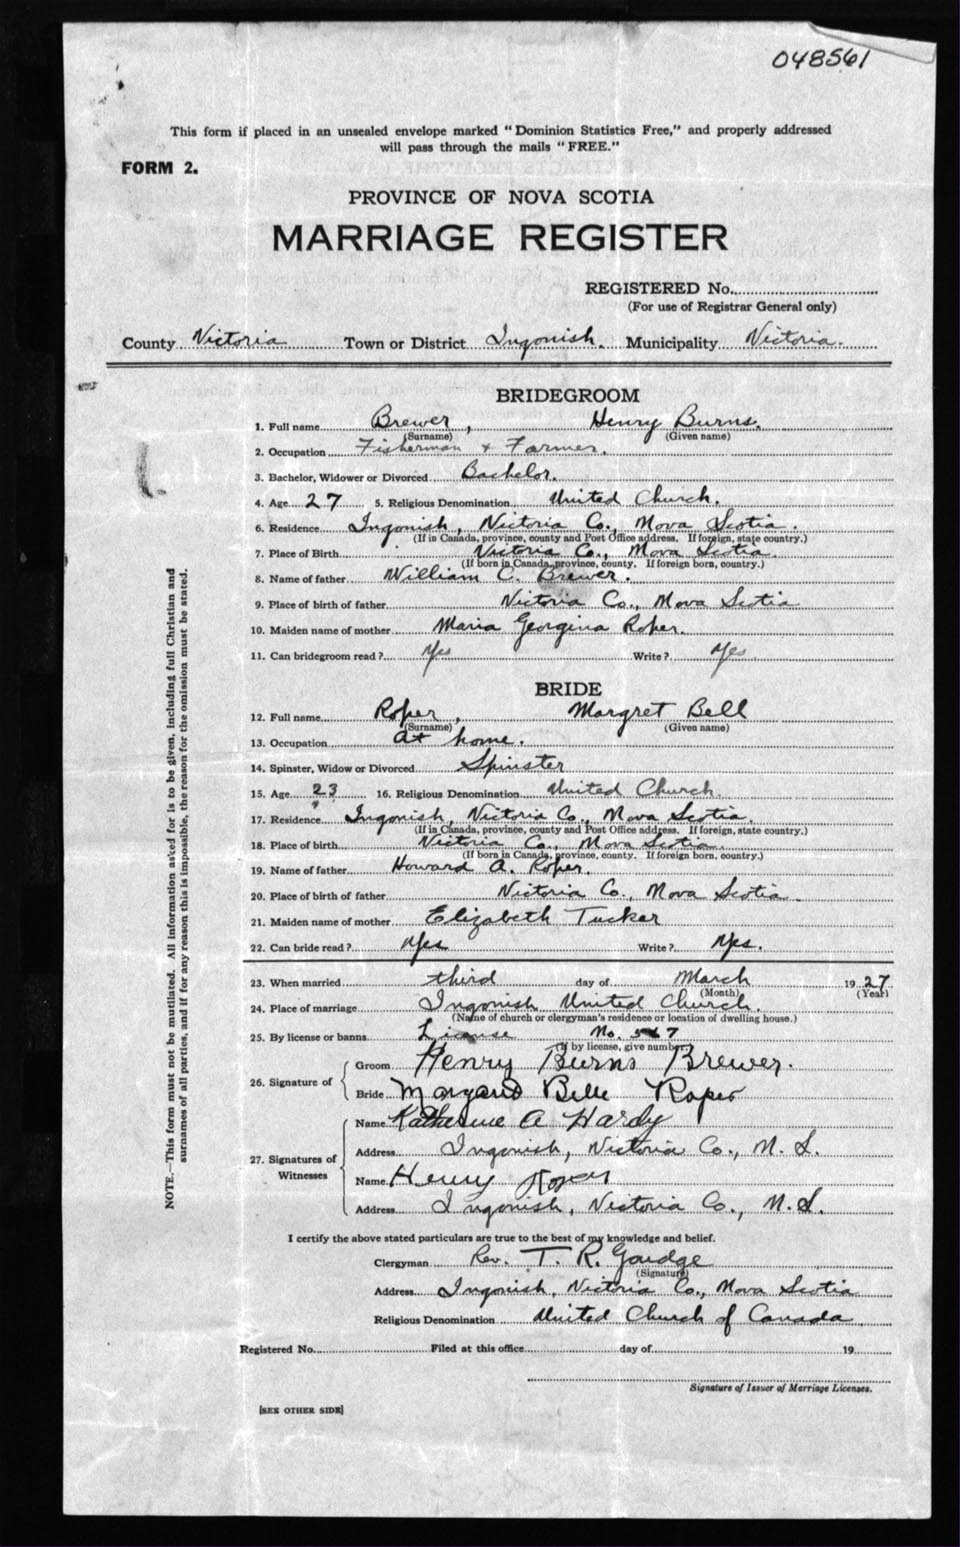 048561
This form if placed in an unsealed envelope marked "Dominion Statistics Free," and properly addressed
will pass through the mails "FREE."
FORM 2.
PROVINCE OF NOVA SCOTIA
MARRIAGE REGISTER
REGISTERED No.
(For use of Registrar General only)
County Victoria Town or District Ingonish. Municipality Victoria.
BRIDEGROOM
1. Full name Brewer, Henry Burns.
(Surname) (Given name)
2. Occupation Fisherman + Farmer.
3. Bachelor, Widower or Divorced Bachelor.
4. Age 27 5. Religious Denomination United Church.
6. Residence Ingonish, Victoria Co., Nova Scotia.
(If in Canada, province, county and Post Office address. If foreign, state country.)
7. Place of Birth Victoria Co., Nova Scotia.
(If born in Canada, province, county. If foreign born, country.)
8. Name of father William C. Brewer.
9. Place of birth of father Victoria Co., Nova Scotia
10. Maiden name of mother Maria Georgina Roper.
11. Can bridegroom read? Yes Write? Yes.
BRIDE
12. Full name Roper, Margret Bell
(Surname) (Given name)
13. Occupation At home.
14. Spinster, Widow or Divorced Spinster
15. Age 23 16. Religious Denomination United Church.
17. Residence Ingonish, Victoria Co., Nova Scotia.
(If in Canada, province, county and Post Office address. If foreign, state country.)
18. Place of birth Victoria Co., Nova Scotia.
(If born in Canada, province, county. If foreign born, country.)
19. Name of father Howard A. Roper.
20. Place of birth of father Victoria Co., Nova Scotia.
21. Maiden name of mother Elizabeth Tucker
22. Can bride read? Yes Write? Yes.
23. When married third day of March 1927
(Month) (Year)
24. Place of marriage Ingonish United Church.
(Name of church or clergyman's residence or location of dwelling house.)
25. By license or banns License No. 567
(If by license, give number.)
26. Signature of
Groom Henry Burns Brewer.
Bride Margaret Belle Roper
27. Signatures of Witnesses
Name Katherine A Hardy
Address Ingonish, Victoria Co., N. S.
Name Henry Roper
Address Ingonish, Victoria Co., N. S.
I certify the above stated particulars are true to the best of my knowledge and belief.
Clergyman Rev. T. R. Goudge
(Signature)
Address Ingonish, Victoria Co., Nova Scotia
Religious Denomination United Church of Canada.
Registered No. Filed at this office day of 19
Signature of Issuer of Marriage Licenses.
[SEE OTHER SIDE]
NOTE.—This form must not be mutilated. All information asked for is to be given, including full Christian and
surnames of all parties, and if for any reason this is impossible, the reason for the omission must be stated.